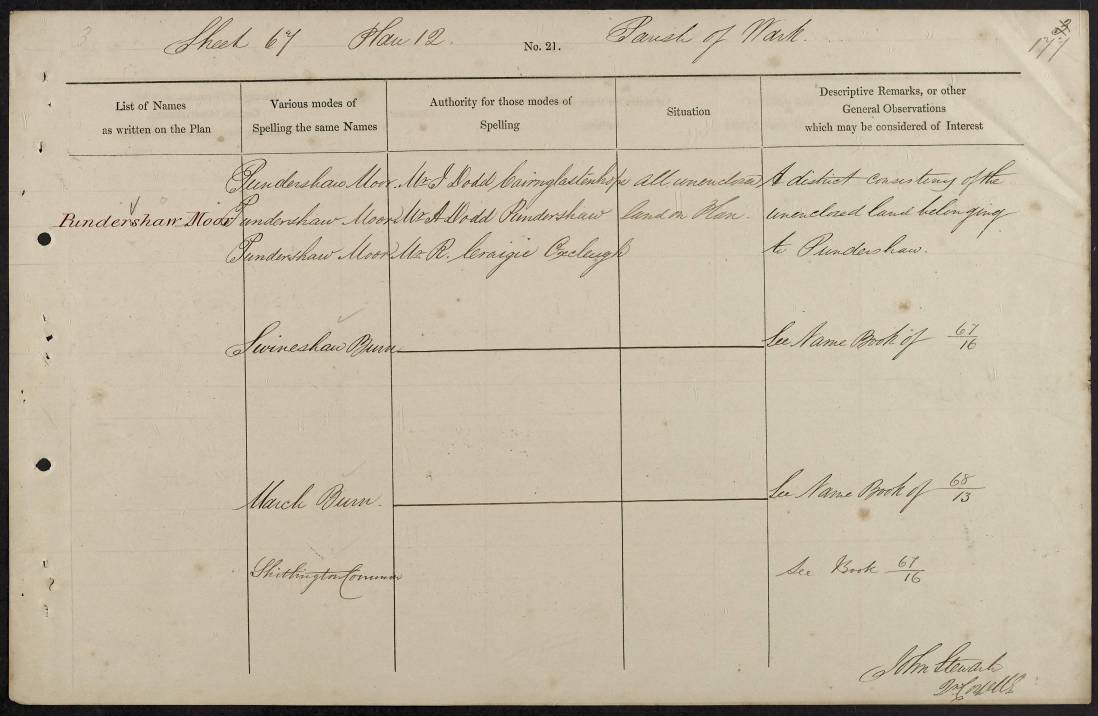 3 Sheet 67 Plan 12. No. 21. Parish of Wark. 177
List of Names
as written on the Plan
Various modes of
Spelling the same Names
Authority for those modes of
Spelling
Situation
Descriptive Remarks, or other
General Observations
which may be considered of Interest
Pundershaw Moor Mr. J Dodd Cairnglastenhope all unenclosed A district consisting of the
Pundershaw Moor Pundershaw Moor Mr. A Dodd Pundershaw land on Plan. unenclosed land belonging
Pundershaw Moor Mr. R. Craigie to Pundershaw.
Swineshaw Burn See Name Book of 67/16
March Burn. See Name Book of 68/13
Shitlington Common see Book 67/16
John Stewart